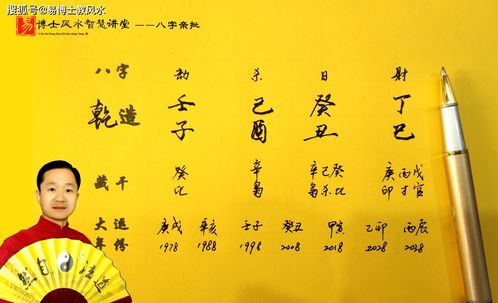 搜狐号@易博士教风水
易 博士风水智慧讲堂 ——八字亲批
八字 劫 杀 日 财
乾造 壬子 己酉 癸丑 丁巳
藏干 癸比 辛枭 辛己癸枭杀比 庚丙戊印才官
大运 庚戌 辛亥 壬子 癸丑 甲寅 乙卯 丙辰
年份 1978 1988 1998 2008 2018 2028 2038